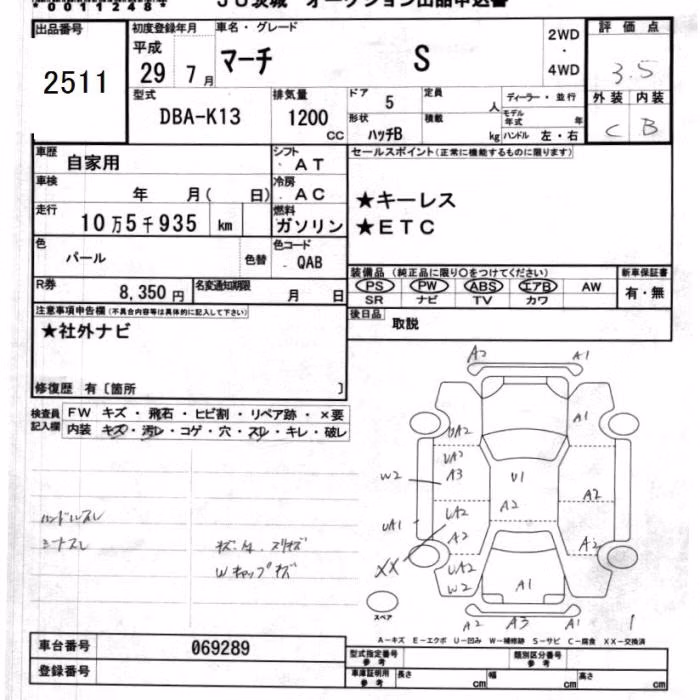 00112481
JU茨城 オークション出品申込書
出品番号
2511
初度登録年月
平成
29 7月
車名・グレード
マーチ S
2WD
・
4WD
評価点
3.5
外装 内装
C B
型式
DBA-K13
排気量
1200
cc
ドア 5
定員 人
形状 ハッチB
積載 kg
ディーラー・並行
モデル年式 年
ハンドル 左・右
車歴 自家用
シフト AT
車検 年 月( 日)
冷房 AC
走行 10万5千935 km
燃料 ガソリン
色 パール 色替
色コード QAB
R券 8,350円
名変通知期限 月 日
セールスポイント(正常に機能するものに限ります)
★キーレス
★ETC
装備品 (純正品に限り○をつけてください)
PS PW ABS エアB AW
SR ナビ TV カワ
新車保証書
有・無
後日品 取説
注意事項申告欄(不具合内容等は具体的に記入して下さい)
★社外ナビ
修復歴 有〔箇所 〕
検査員記入欄
FW キズ・飛石・ヒビ割・リペア跡・×要
内装 キズ・汚レ・コゲ・穴・スレ・キレ・破レ
ハンドルスレ
シートスレ
Wキャップキズ
A2 A1
UA2 A1
UA2
A3
W2 U1
A2 A2
UA1 UA2
A2 A2
XX UA2
W2 A1
スペア
A2 A3 A1 1
A-キズ E-エクボ U-凹み W-補修跡 S-サビ C-腐食 XX-交換済
車台番号 069289
登録番号
型式指定番号 参考
類別区分番号 参考
車庫証明用 参考
長さ cm 幅 cm 高さ cm